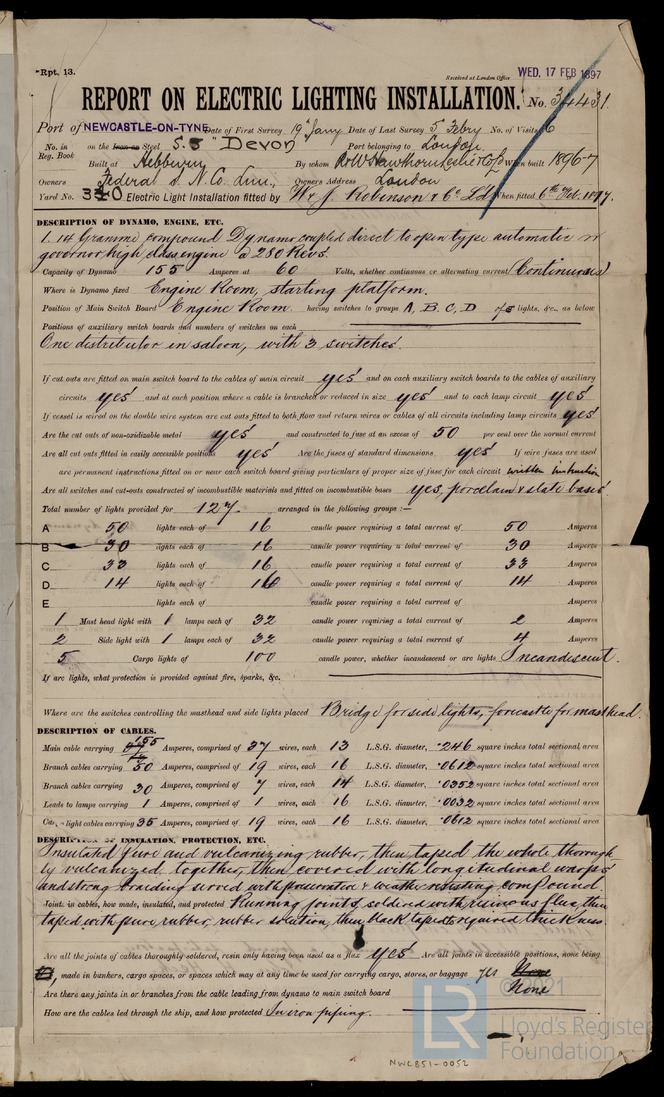 Rpt. 13.
Received at London Office WED. 17 FEB 1897
REPORT ON ELECTRIC LIGHTING INSTALLATION. No. 34431
Port of NEWCASTLE-ON-TYNE Date of First Survey 19th Jany Date of Last Survey 5 Febry No. of Visits 6
No. in Reg. Book on the Iron or Steel S.S "Devon" Port belonging to London
Built at Hebburn By whom R & W Hawthorn Leslie & Co Ld When built 1896-7
Owners Federal S. N. Co. Lim., Owners Address London
Yard No. 340 Electric Light Installation fitted by W & J. Robinson & Co. Ld When fitted 6th Feb. 1897.
DESCRIPTION OF DYNAMO, ENGINE, ETC.
1. 14 Gramme compound Dynamo coupled direct to open type automatic
governor high class engine 280 Revs.
Capacity of Dynamo 155 Amperes at 60 Volts, whether continuous or alternating current (Continuous)
Where is Dynamo fixed Engine Room, starting platform.
Position of Main Switch Board Engine Room having switches to groups A, B, C, D of lights, &c., as below
Positions of auxiliary switch boards and numbers of switches on each
One distributor in saloon, with 3 switches.
If cut outs are fitted on main switch board to the cables of main circuit yes and on each auxiliary switch boards to the cables of auxiliary
circuits yes and at each position where a cable is branched or reduced in size yes and to each lamp circuit yes
If vessel is wired on the double wire system are cut outs fitted to both flow and return wires or cables of all circuits including lamp circuits yes
Are the cut outs of non-oxidizable metal yes and constructed to fuse at an excess of 50 per cent over the normal current
Are all cut outs fitted in easily accessible positions yes Are the fuses of standard dimensions yes If wire fuses are used
are permanent instructions fitted on or near each switch board giving particulars of proper size of fuse for each circuit written instruction
Are all switches and cut-outs constructed of incombustible materials and fitted on incombustible bases yes, porcelain & slate bases
Total number of lights provided for 127 arranged in the following groups :—
A 50 lights each of 16 candle power requiring a total current of 50 Amperes
B 30 lights each of 16 candle power requiring a total current of 30 Amperes
C 33 lights each of 16 candle power requiring a total current of 33 Amperes
D 14 lights each of 16 candle power requiring a total current of 14 Amperes
E lights each of candle power requiring a total current of Amperes
1 Mast head light with 1 lamps each of 32 candle power requiring a total current of 2 Amperes
2 Side light with 1 lamps each of 32 candle power requiring a total current of 4 Amperes
5 Cargo lights of 100 candle power, whether incandescent or arc lights Incandescent.
If arc lights, what protection is provided against fire, sparks, &c.
Where are the switches controlling the masthead and side lights placed Bridge for side lights, forecastle for masthead.
DESCRIPTION OF CABLES.
Main cable carrying 155 Amperes, comprised of 37 wires, each 13 L.S.G. diameter, .246 square inches total sectional area
Branch cables carrying 50 Amperes, comprised of 19 wires, each 16 L.S.G. diameter, .0612 square inches total sectional area
Branch cables carrying 30 Amperes, comprised of 7 wires, each 14 L.S.G. diameter, .0352 square inches total sectional area
Leads to lamps carrying 1 Amperes, comprised of 1 wires, each 16 L.S.G. diameter, .0032 square inches total sectional area
Cargo light cables carrying 35 Amperes, comprised of 19 wires, each 16 L.S.G. diameter, .0612 square inches total sectional area
DESCRIPTION OF INSULATION, PROTECTION, ETC.
Insulated pure and vulcanizing rubber, then taped the whole thorough
ly vulcanized together, then covered with longitudinal warps
and strong braiding served with preservative & weather resisting compound
Joints in cables, how made, insulated, and protected Running joints, soldered with resinous flux, then
taped with pure rubber, rubber solution, then black taped to required thickness.
Are all the joints of cables thoroughly soldered, resin only having been used as a flux yes Are all joints in accessible positions, none being
made in bunkers, cargo spaces, or spaces which may at any time be used for carrying cargo, stores, or baggage yes None
Are there any joints in or branches from the cable leading from dynamo to main switch board None
How are the cables led through the ship, and how protected In iron piping.
© 2021
LR Lloyd's Register
Foundation
NWCB51-0052